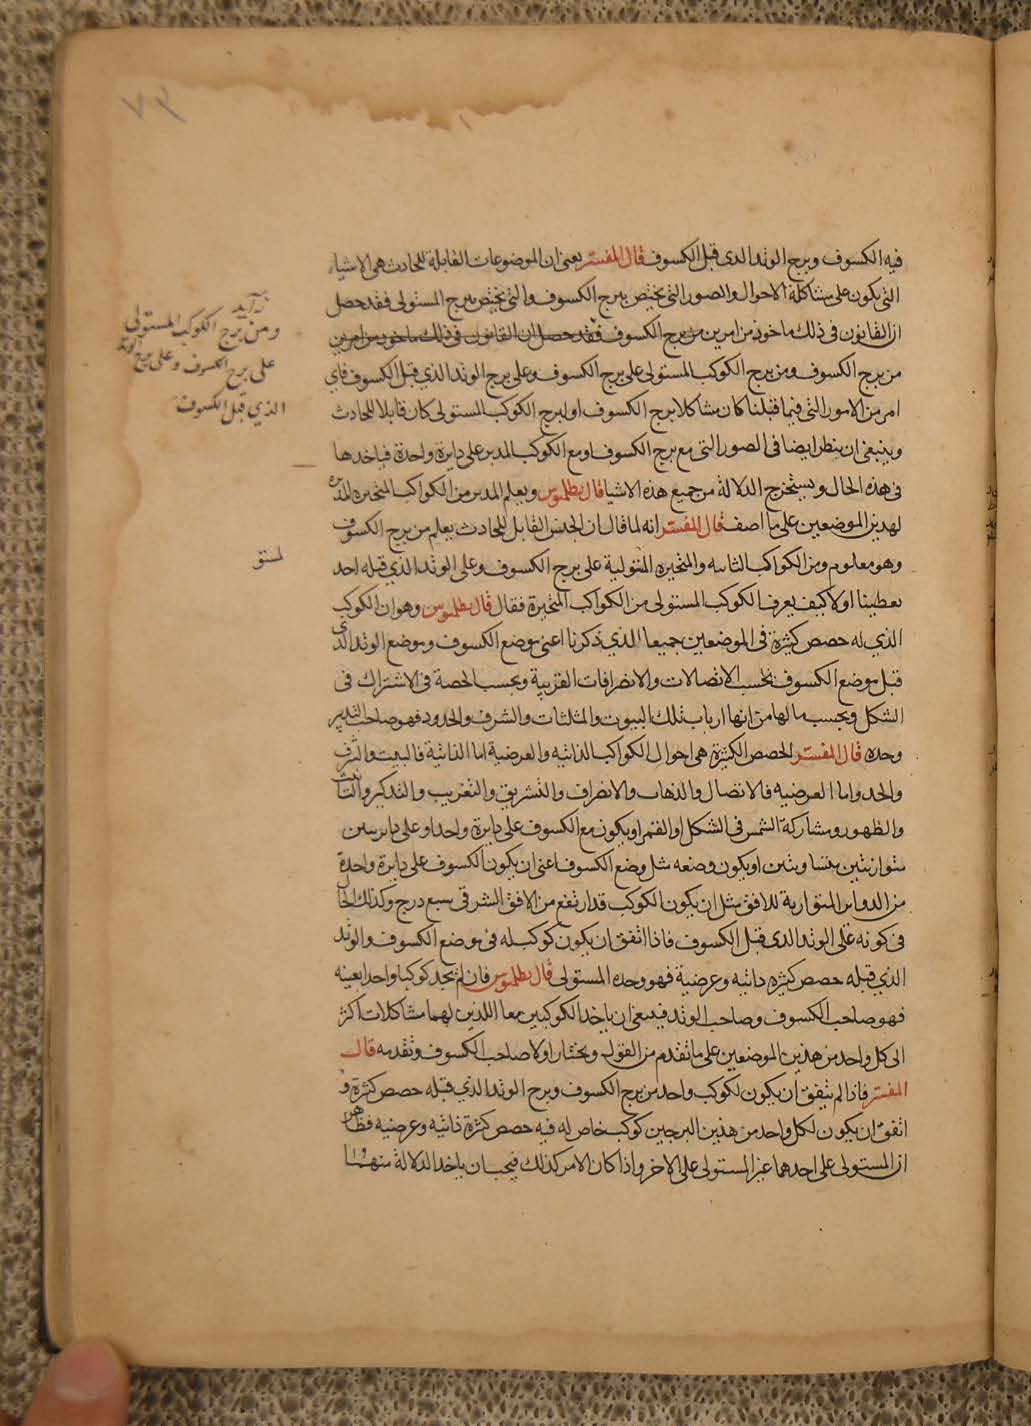 فيه الكسوف وبرج الوتد الذي قبل الكسوف قال المفسر يعني ان الموضوعات القابلة للحادث هي الاشيا
التي يكون على مشاكلة الاحوال والصور التي يختص ببرج الكسوف والتي يختص ببرج المستولي فقد حصل
ان القانون في ذلك ماخوذ من امرين من برج الكسوف فقد حصل ان القانون في ذلك ماخوذ من امرين
من برج الكسوف ومن برج الكوكب المستولي على برج الكسوف وعلى برج الوتد الذي قبل الكسوف فاي
امر من الامور التي فيما قبلنا كان مشاكلا برج الكسوف او لبرج الكوكب المستولي كان قابلا للحادث
وينبغي ان ينظر ايضا في الصور التي مع برج الكسوف او مع الكوكب المدبر على دايرة واحدة فياخدها
في هذه الحال ويستخرج الدلالة من جميع هذه الاشيا قال بطلميوس ويعلم المدبر من الكواكب المتحيره المدبره
لهذين الموضعين على ما اصف قال المفسر انه لما قال ان الجنس القابل للحادث يعلم من برج الكسوف
وهو معلوم ومن الكواكب الثابته والمتحيره المتولية على برج الكسوف وعلى الوتد الذي قبله اخد
يعطينا اولا كيف يعرف الكوكب المستولي من الكواكب المتحيرة فقال قال بطلميوس وهو ان الكوكب
الذي له حصص كثيرة في الموضعين جميعا الذي ذكرنا اعني موضع الكسوف وموضع الوتد الذي
قبل موضع الكسوف بحسب الاتصالات والانصرافات القريبة وبحسب الحصة في الاشتراك في
الشكل وبحسب ما لها من انها ارباب تلك البيوت والمثلثات والشرف والحدود فهو صاحب التدبير
وحده قال المفسر الحصص الكثيرة هي احوال الكواكب الذاتيه والعرضية اما الذاتية فالبيت والشرف
والحد واما العرضيه فالاتصال والذهاب والانصراف والتشريق والتغريب والتذكير والتانيث
والظهور ومشاركة الشمس في الشكل او القمر او يكون مع الكسوف على دايرة واحدا وعلى دايرتين
متوازيتين متساويتين او يكون وضعه مثل وضع الكسوف اعني ان يكون الكسوف على دايرة واحدة
من الدواير المتوازية للافق مثل ان يكون الكوكب قد ارتفع من الافق الشرقي سبع درج وكذلك الحال
في كونه على الوتد الذي قبل الكسوف فاذا اتفق ان يكون كوكب له في موضع الكسوف والوتد
الذي قبله حصص كثيره ذاتيه وعرضية فهو وحده المستولي قال بطلميوس فان لم تجد كوكبا واحدا بعينه
فهو صاحب الكسوف وصاحب الوتد فينبغي ان ياخد الكوكبين معا اللذين لهما مشاكلات اكثر
الى كل واحد من هذين الموضعين على ما تقدم من القول ويختار اولا صاحب الكسوف وتقدمه قال
المفسر فاذا لم يتفق ان يكون لكوكب واحد من برج الكسوف وبرج الوتد الذي قبله حصص كثيرة و
اتفق ان يكون لكل واحد من هذين البرجين كوكب خاص له فيه حصص كثيرة ذاتيه وعرضيه فظاهر
ان المستولي على احدهما غير المستولي على الاخر واذا كان الامر كذلك فيجب ان ياخد الدلالة منهما
زايد
ومن برج الكوكب المستولي
على برج الكسوف وعلى برج الوتد
الذي قبل الكسوف